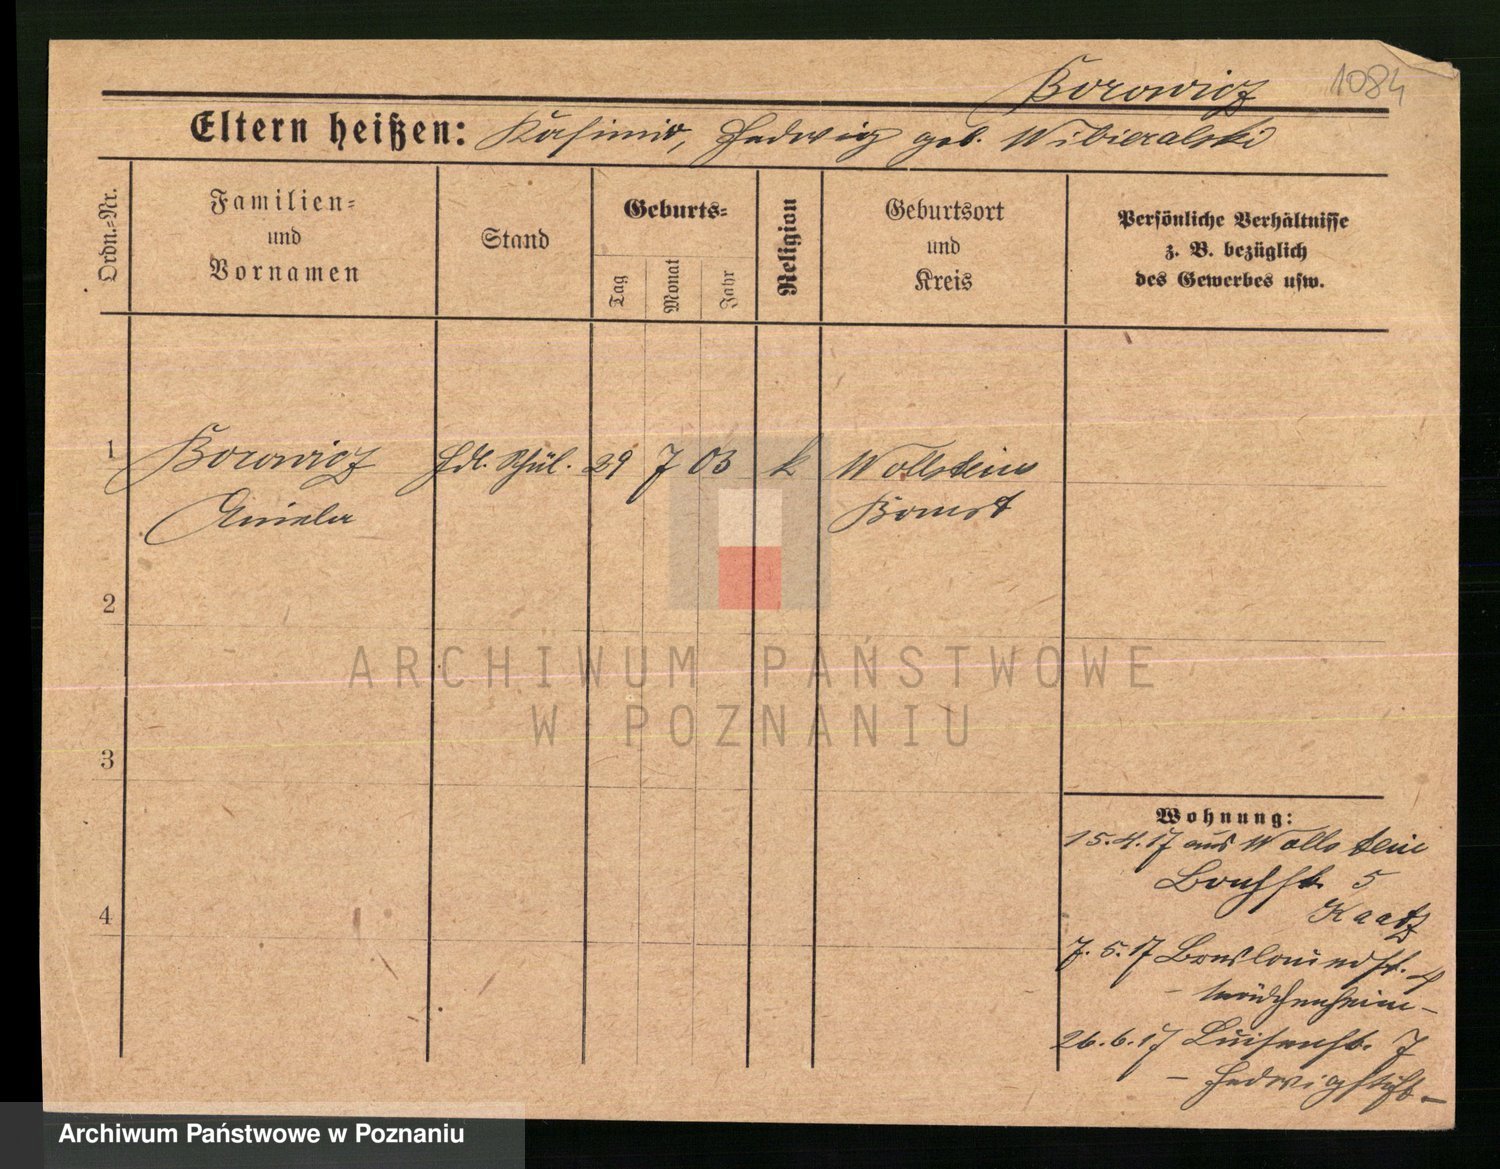 Borowicz 1084
Eltern heißen: Kasimir, Hedwig geb. Wibieralski
Ordn.-Nr.
Familien-
und
Vornamen
Stand
Geburts-
Tag
Monat
Jahr
Religion
Geburtsort
und
Kreis
Persönliche Verhältnisse
z. B. bezüglich
des Gewerbes usw.
1 Borowicz Hdl. Schül. 29 7 03 k Wollstein
Aniela Bomst
2
3
4
Wohnung:
15.4.17 aus Wollstein
5
Kaatz
7.5.17
- Mädchenheim -
26.6.17 Luisenstr. 7
- Hedwigstift -
ARCHIWUM PAŃSTWOWE
W POZNANIU
Archiwum Państwowe w Poznaniu